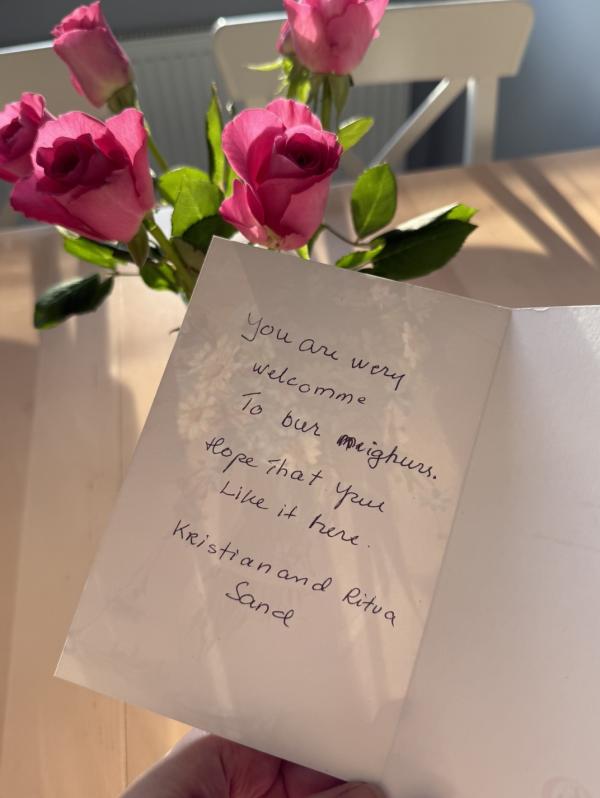 You are wery
welcomme
To bur meighurs.
Hope That you
Like it here.
Kristian and Ritva
Sand